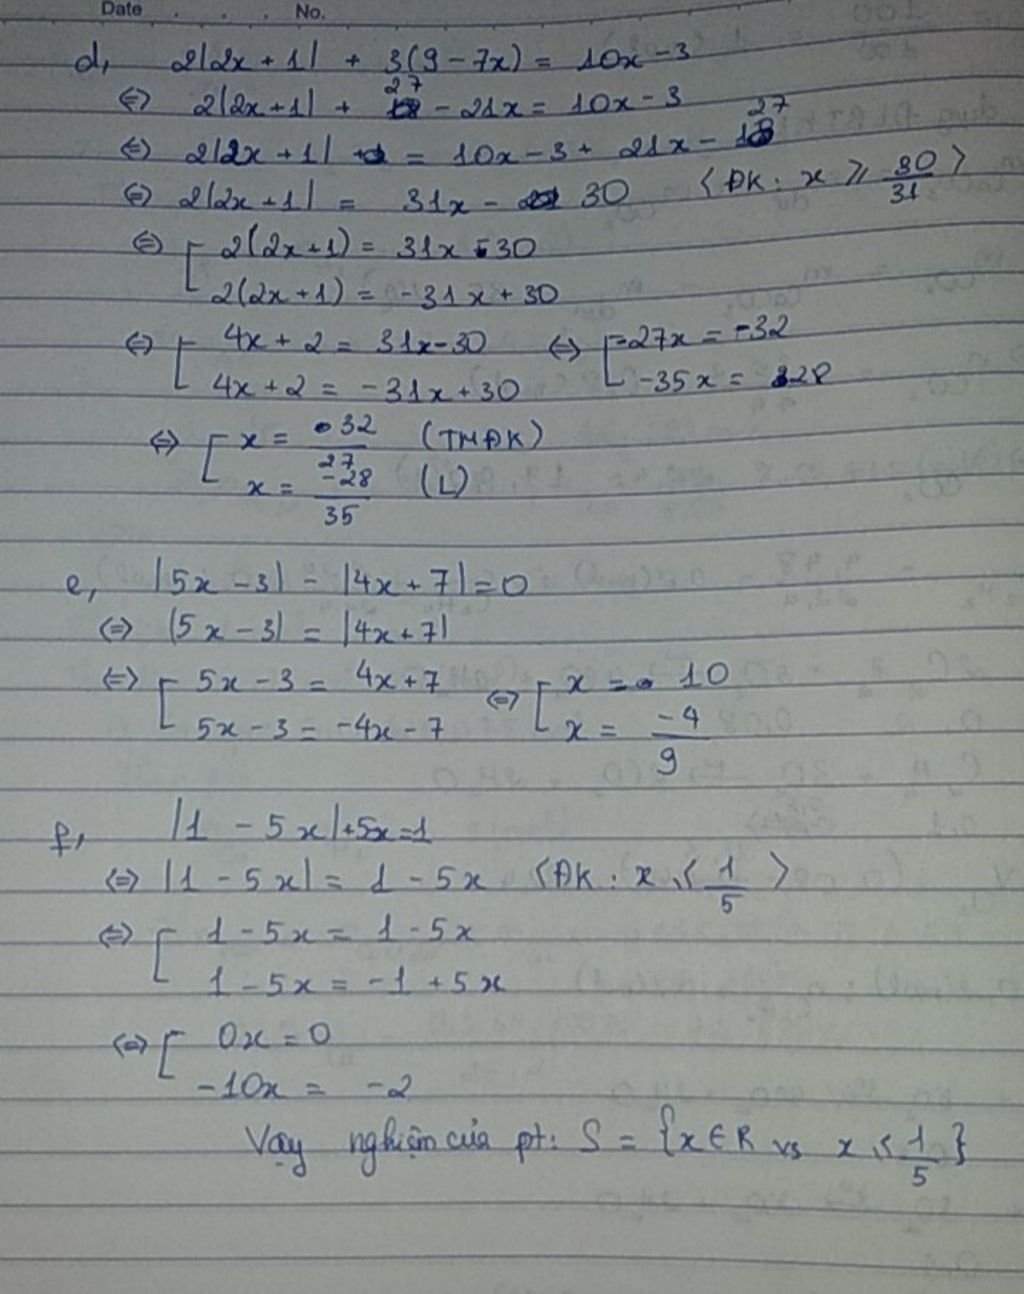 Date . . . No.
d, 2|2x + 1| + 3(9 - 7x) = 10x - 3
⇔ 2|2x+1| + 27 - 21x = 10x - 3
⇔ 2|2x + 1| = 10x - 3 + 21x - 27
⇔ 2|2x+1| = 31x - 30 <ĐK: x ⩾ 30/31>
⇔ [ 2(2x+1) = 31x - 30
2(2x+1) = -31x + 30
⇔ [ 4x + 2 = 31x - 30 ⇔ [ -27x = -32
4x + 2 = -31x + 30 -35x = 28
⇔ [ x = 32/27 (TMĐK)
x = -28/35 (L)
e, |5x - 3| - |4x + 7| = 0
⇔ |5x - 3| = |4x + 7|
⇔ [ 5x - 3 = 4x + 7 ⇔ [ x = 10
5x - 3 = -4x - 7 x = -4/9
f, |1 - 5x| + 5x = 1
⇔ |1 - 5x| = 1 - 5x <ĐK: x ⩽ 1/5>
⇔ [ 1 - 5x = 1 - 5x
1 - 5x = -1 + 5x
⇔ [ 0x = 0
-10x = -2
Vậy nghiệm của pt: S = {x ∈ R vs x ⩽ 1/5}